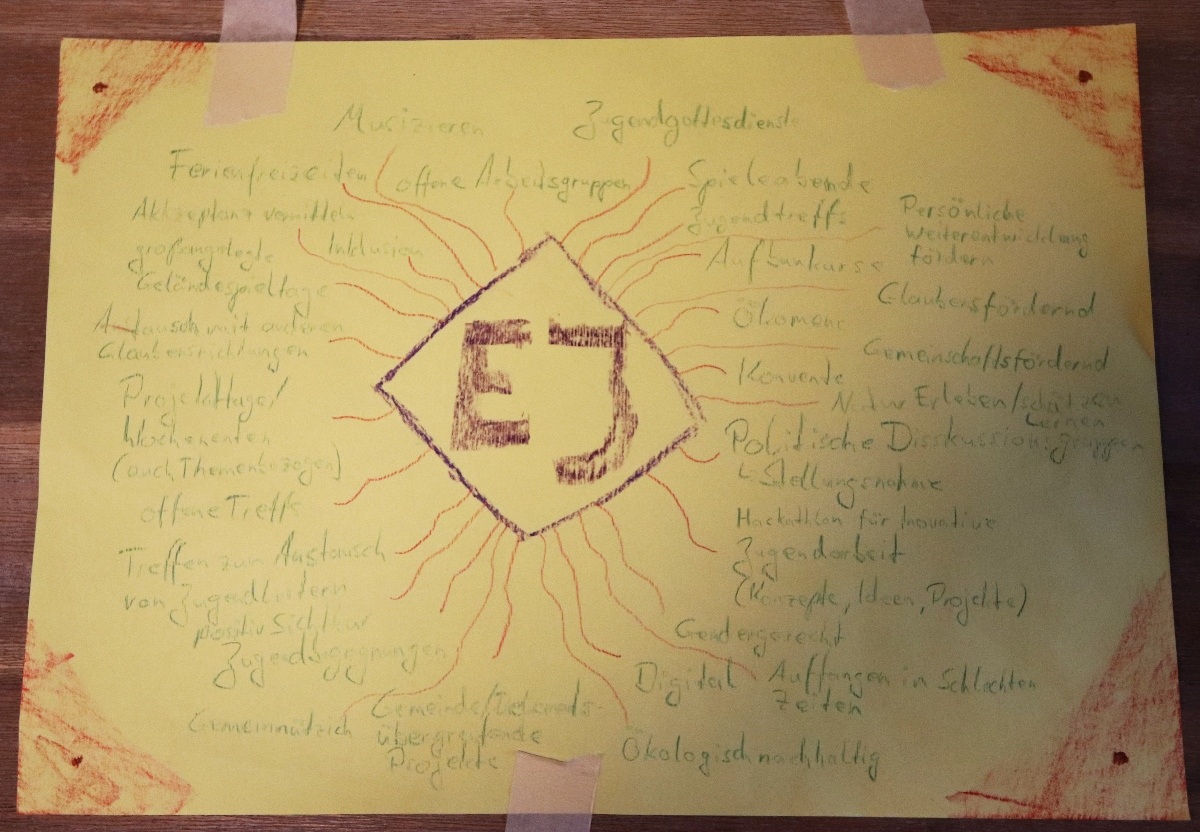 Musizieren
Jugendgottesdienste
Ferienfreizeiten
offene Arbeitsgruppen
Spieleabende
Akkzeptanz vermitteln
Jugendtreffs
Persönliche
Weiterentwicklung
fördern
großangelegte
Geländespieltage
Inklusion
Aufbaukurse
Austausch mit anderen
Glaubensrichtungen
Ökomene
Glaubensfördernd
Gemeinschaftsfördernd
EJ
Projekttage/
Wochenenten
(auch Themenbezogen)
Konvente
Natur Erleben/schützen
Lernen
Politische Disskussionsgruppen
↳ Stellungsnahme
offene Treffs
Hackathlon für Inovative
Jugendarbeit
(Konzepte, Ideen, Projekte)
Treffen zum Austausch
von Jugendleitern
positiv Sichtbar
Jugendbegegnungen
Gendergerecht
Digital
Auffangen in Schlechten
Zeiten
Gemeinnützich
übergreifende
Projekte
Ökologisch nachhaltig